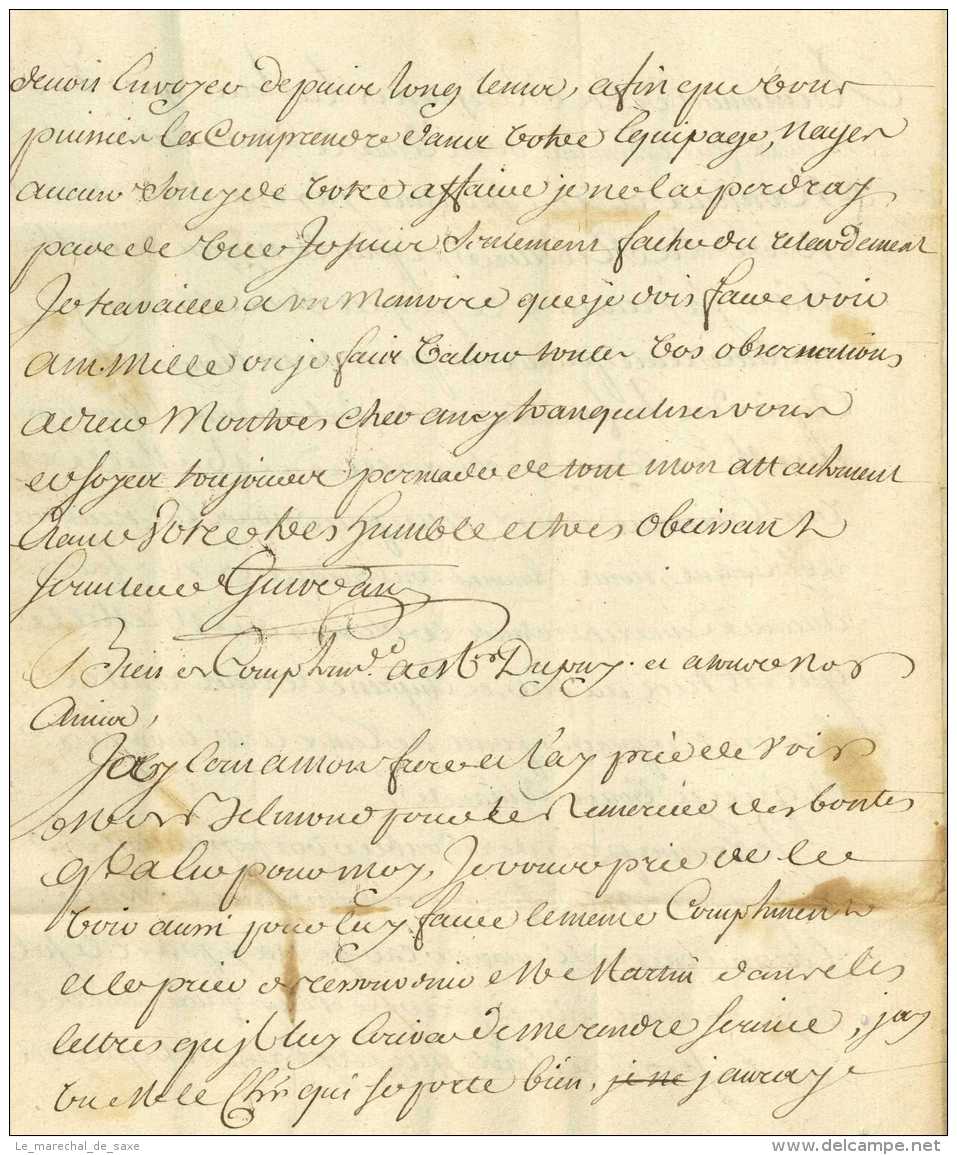 denvoit Envoyer depuis long tems, afin que vous
puissiez les Comprendre dans votre Equipage, Nayez
aucun Soucy de votre affaire je ne la perdray
pas de vue Je suis Seulement faché du retardement
Je travaille a un Memoire que je dois faire voir
a M. Mille ou je fais valoir toutes vos observations
adieu Mon tres cher ancy tranquilisés vous
et soyez toujours persuadé de tout mon attachement
Votre tres humble et tres Obeissant
serviteur
Bien des Complimens de Mr Dupuy. et a tous nos
Amis,
Jay Ecrit a mon frere et l'ay prié de Voir
Mr Belmond pour le Remercier des bontes
qu'il a Eu pour moy, Je vous prie de le
voir aussi pour luy faire le meme Compliment
et le prier de ressouvenir Mr Martin dans les
lettres qu'il luy Ecrira de me rendre service, jay
vu Mr le Chr qui se porte bien, je ne jauray
Le_marechal_de_saxe
www.delcampe.net